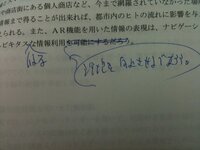 や商店街にある個人商店など、今まで網羅されていなかった場
情報まで得ることが出来れば、都市内のヒトの流れに影響を与
えられる。また、AR機能を用いた情報の表現は、ナビゲーシ
ビキタスな情報利用を可能にするだろう。
向上させるであろう。